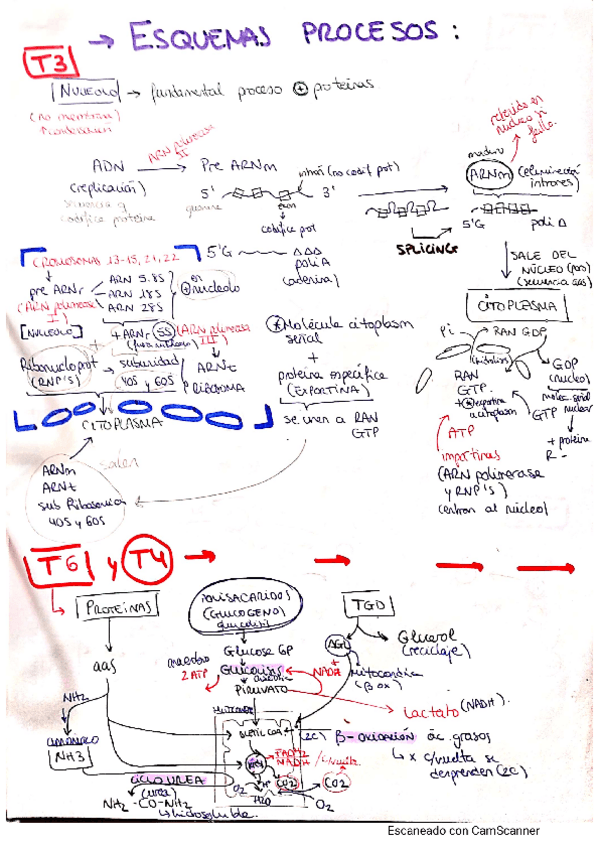 → ESQUEMAS PROCESOS:
T3
NUCLEOLO → fundamental proceso + proteinas
(no membrana)
ADN
ARN polimerasa II
Pre ARNm
(replicación)
codifica proteina
5' 3'
intrón (no codif prot)
exon
codifica prot
guanina
maduro
ARNm (eliminación intrones)
retenido en núcleo si fallo.
SPLICING
5'G poli A
5'G AAA
poli A
(adenina)
CROMOSOMAS 13-15, 21, 22
pre ARNr
(ARN polimerasa I)
ARN 5.8S
ARN 18S
ARN 28S
en nucleolo
[NUCLEOLO]
+ ARNr 5S (ARN polimerasa III)
Ribonucleoprot (RNP'S)
subunidad 40S y 60S
ARNt
RIBOSOMA
CITOPLASMA
salen
ARNm
ARNt
sub Ribosomica
40S y 60S
* Molécula citoplasm
señal
+
proteina específica
(EXPORTINA)
se unen a RAN
GTP
SALE DEL
NÚCLEO (poro)
CITOPLASMA
Pi RAN GDP
(hidrólisis)
RAN
GTP
+ * exportina
a citoplasm
GDP
(nucleo)
GTP nuclear
+ proteina
R -
ATP
importinas
(ARN polimerasa
y RNP'S)
entran al núcleo
T6 y T4 →
PROTEINAS
POLISACARIDOS
(GLUCOGENO)
TGD
Glucosa 6P
Glucolisis
2 ATP
NADH
PIRUVATO
AGL
Glicerol
(reciclaje)
Mitocondria
(β ox)
Lactato (NADH)
aas
NH2
amoniaco
NH3
CICLO UREA
(urea)
NH2-CO-NH2
↳ hidrosoluble.
ACETIL COA
(2C) β-oxidación ác. grasos
↳ x c/vuelta se
desprenden (2C)
FADH2
NADH
CO2 → CO2
O2
H2O
O2
Escaneado con CamScanner